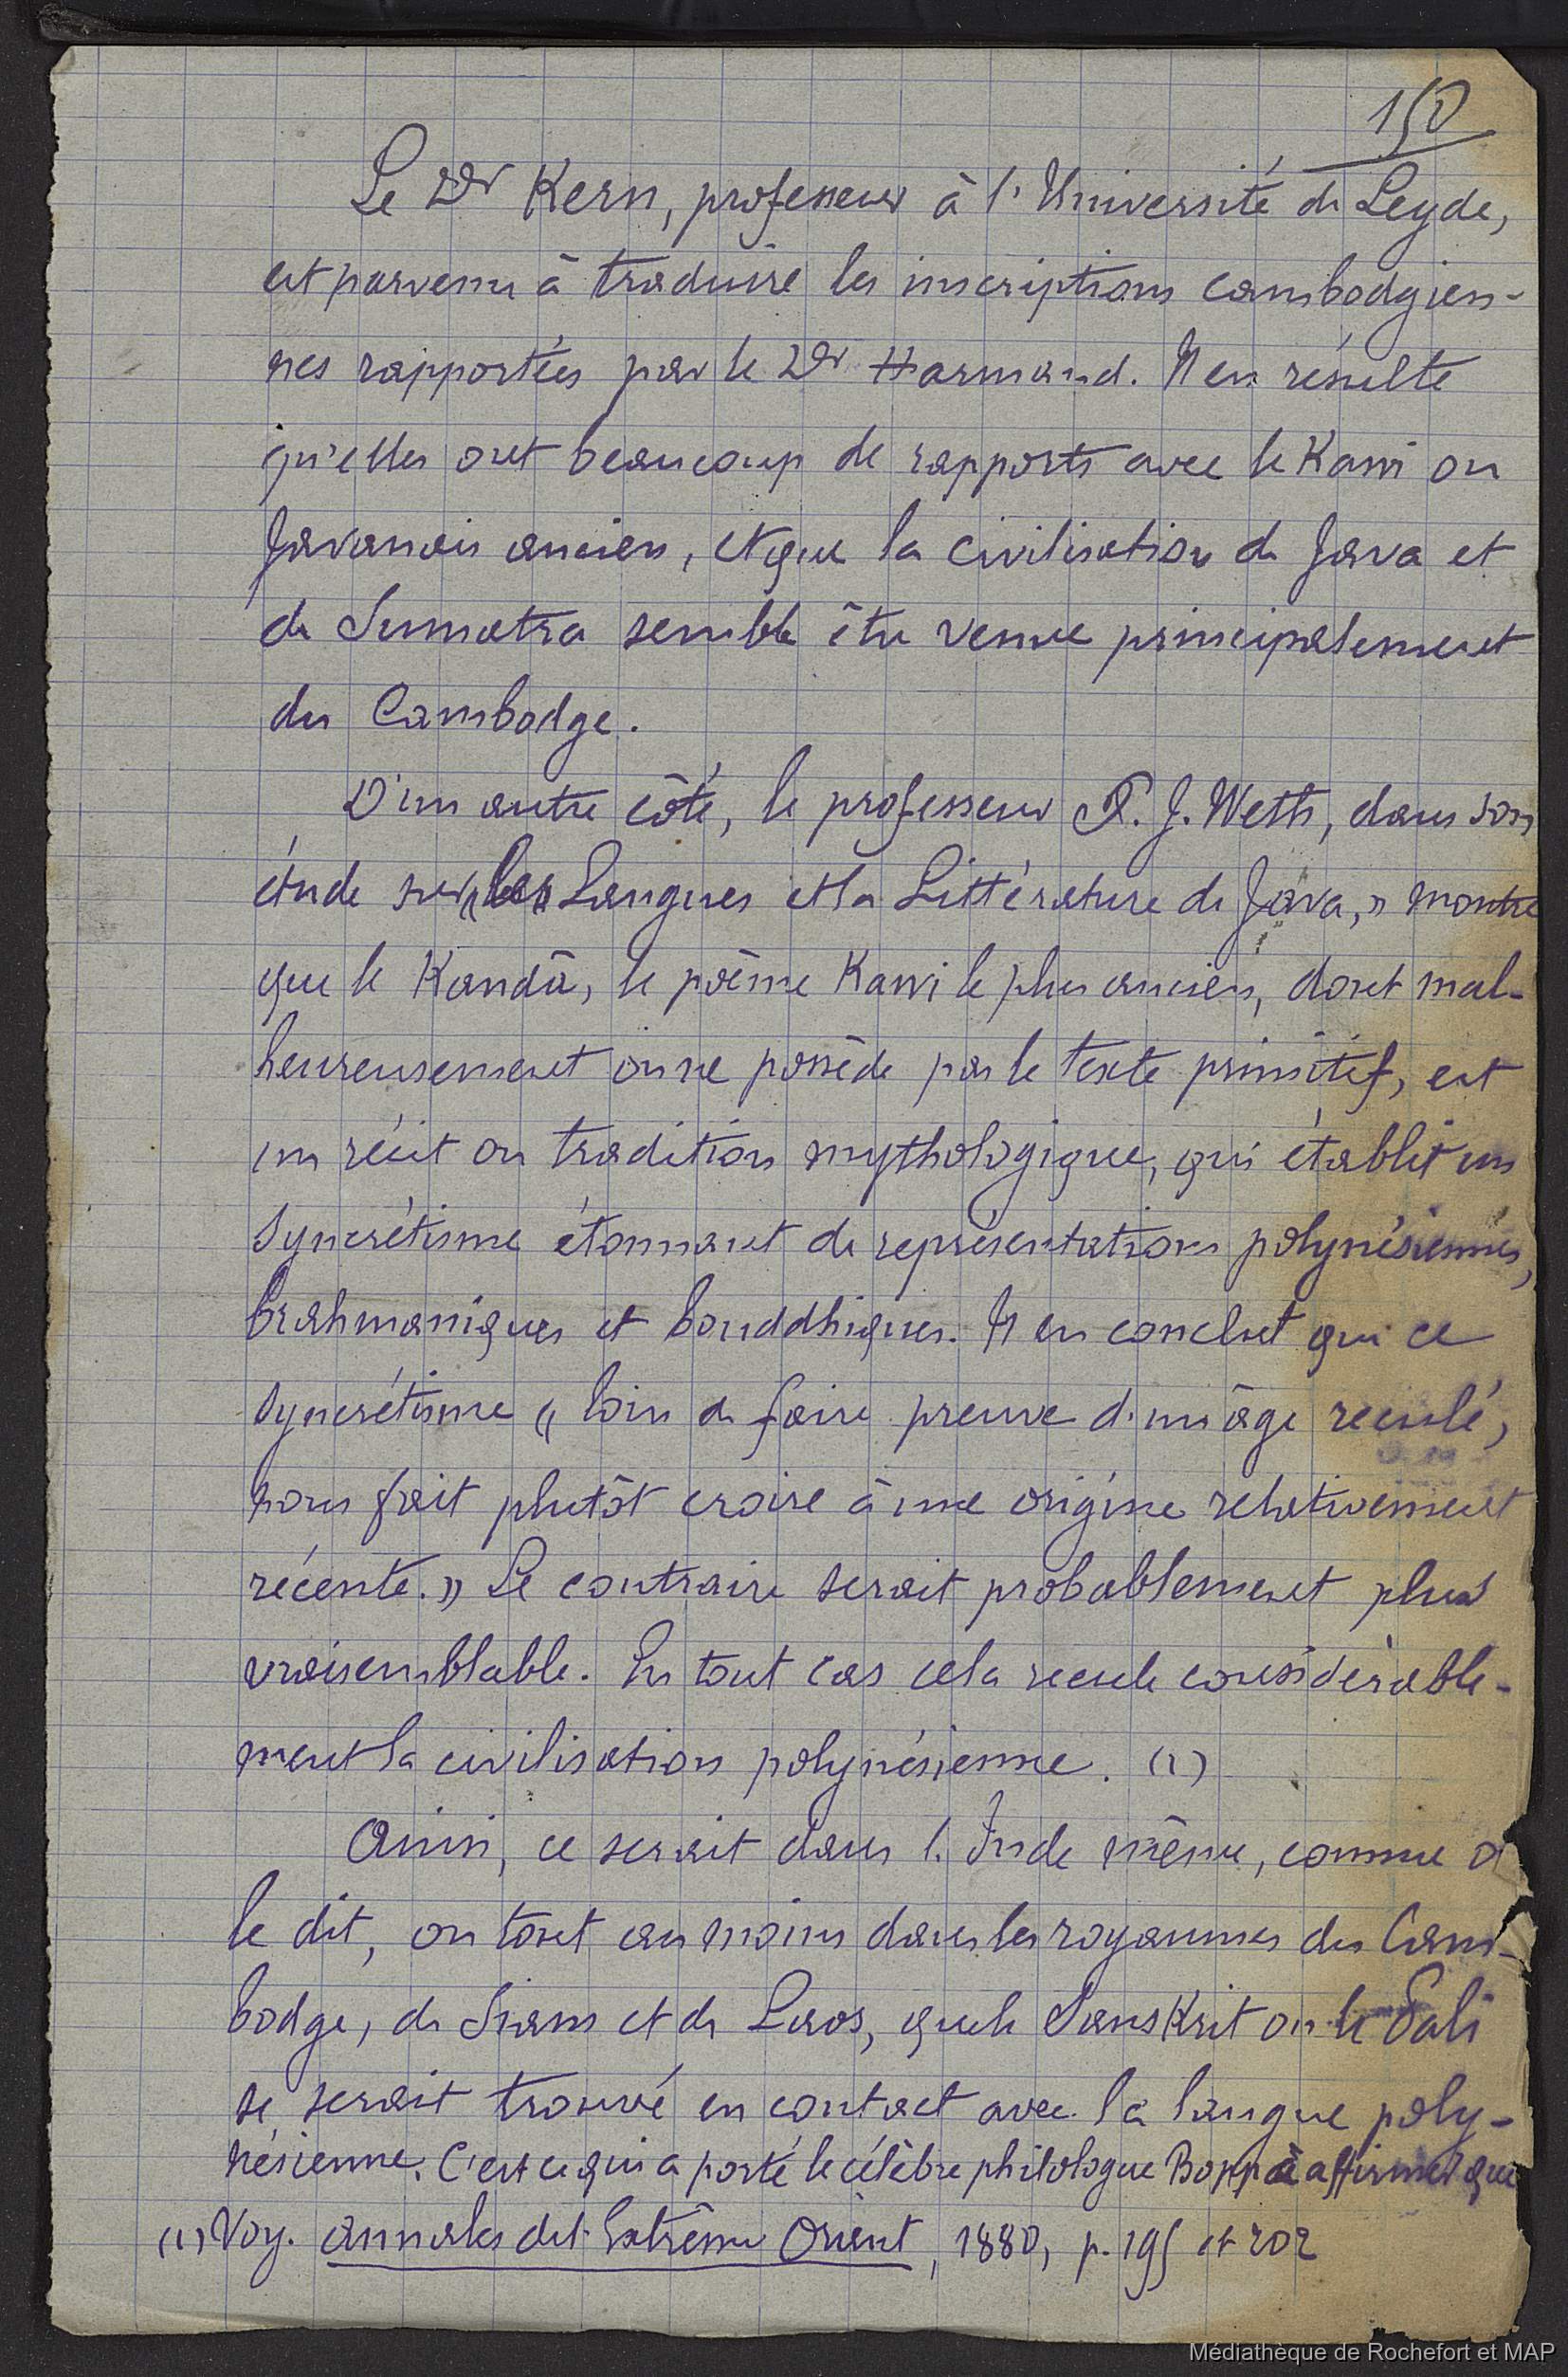 150
Le Dr Kern, professeur à l'Université de Leyde,
est parvenu à traduire les inscriptions cambodgien-
nes rapportées par le Dr Harmand. Il en résulte
qu'elles ont beaucoup de rapports avec le Kawi ou
Javanais ancien, et que la civilisation de Java et
de Sumatra semble être venue principalement
du Cambodge.
D'un autre côté, le professeur P. J. Weth, dans son
étude sur "les" Langues et la Littérature de Java, » montre
que le Kandâ, le poème Kawi le plus ancien, dont mal-
heureusement on ne possède pas le texte primitif, est
un récit ou tradition mythologique, qui établit un
syncrétisme étonnant de représentations polynésiennes,
brahmaniques et bouddhiques. Il en conclut que ce
syncrétisme « loin de faire preuve d'un âge reculé,
nous fait plutôt croire à une origine relativement
récente. » Le contraire serait probablement plus
vraisemblable. En tout cas cela recule considérable-
ment la civilisation polynésienne. (1)
Ainsi, ce serait dans l'Inde même, comme a
le dit, ou tout au moins dans les royaumes du Cam-
bodge, de Siam et de Laos, que le Sanskrit ou le Pali
se serait trouvé en contact avec la langue poly-
nésienne. C'est ce qui a porté le célèbre philologue Bopp à affirmer que
(1) Voy. Annales de l'Extrême Orient, 1880, p. 195 et 202
Médiathèque de Rochefort et MAP